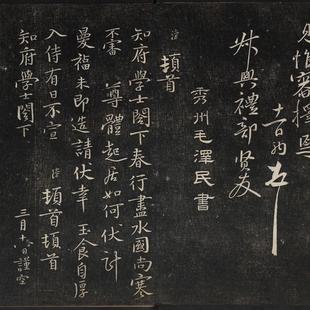 吉
叔興禮部賢友
秀州毛澤民書
頓首
知府學士閤下春行盡水國尚寒
不審 尊體起居如何伏計
曼福未即造請伏幸 玉食自厚
入侍有日不宣 頓首頓首
知府學士閤下
三月十 日謹空